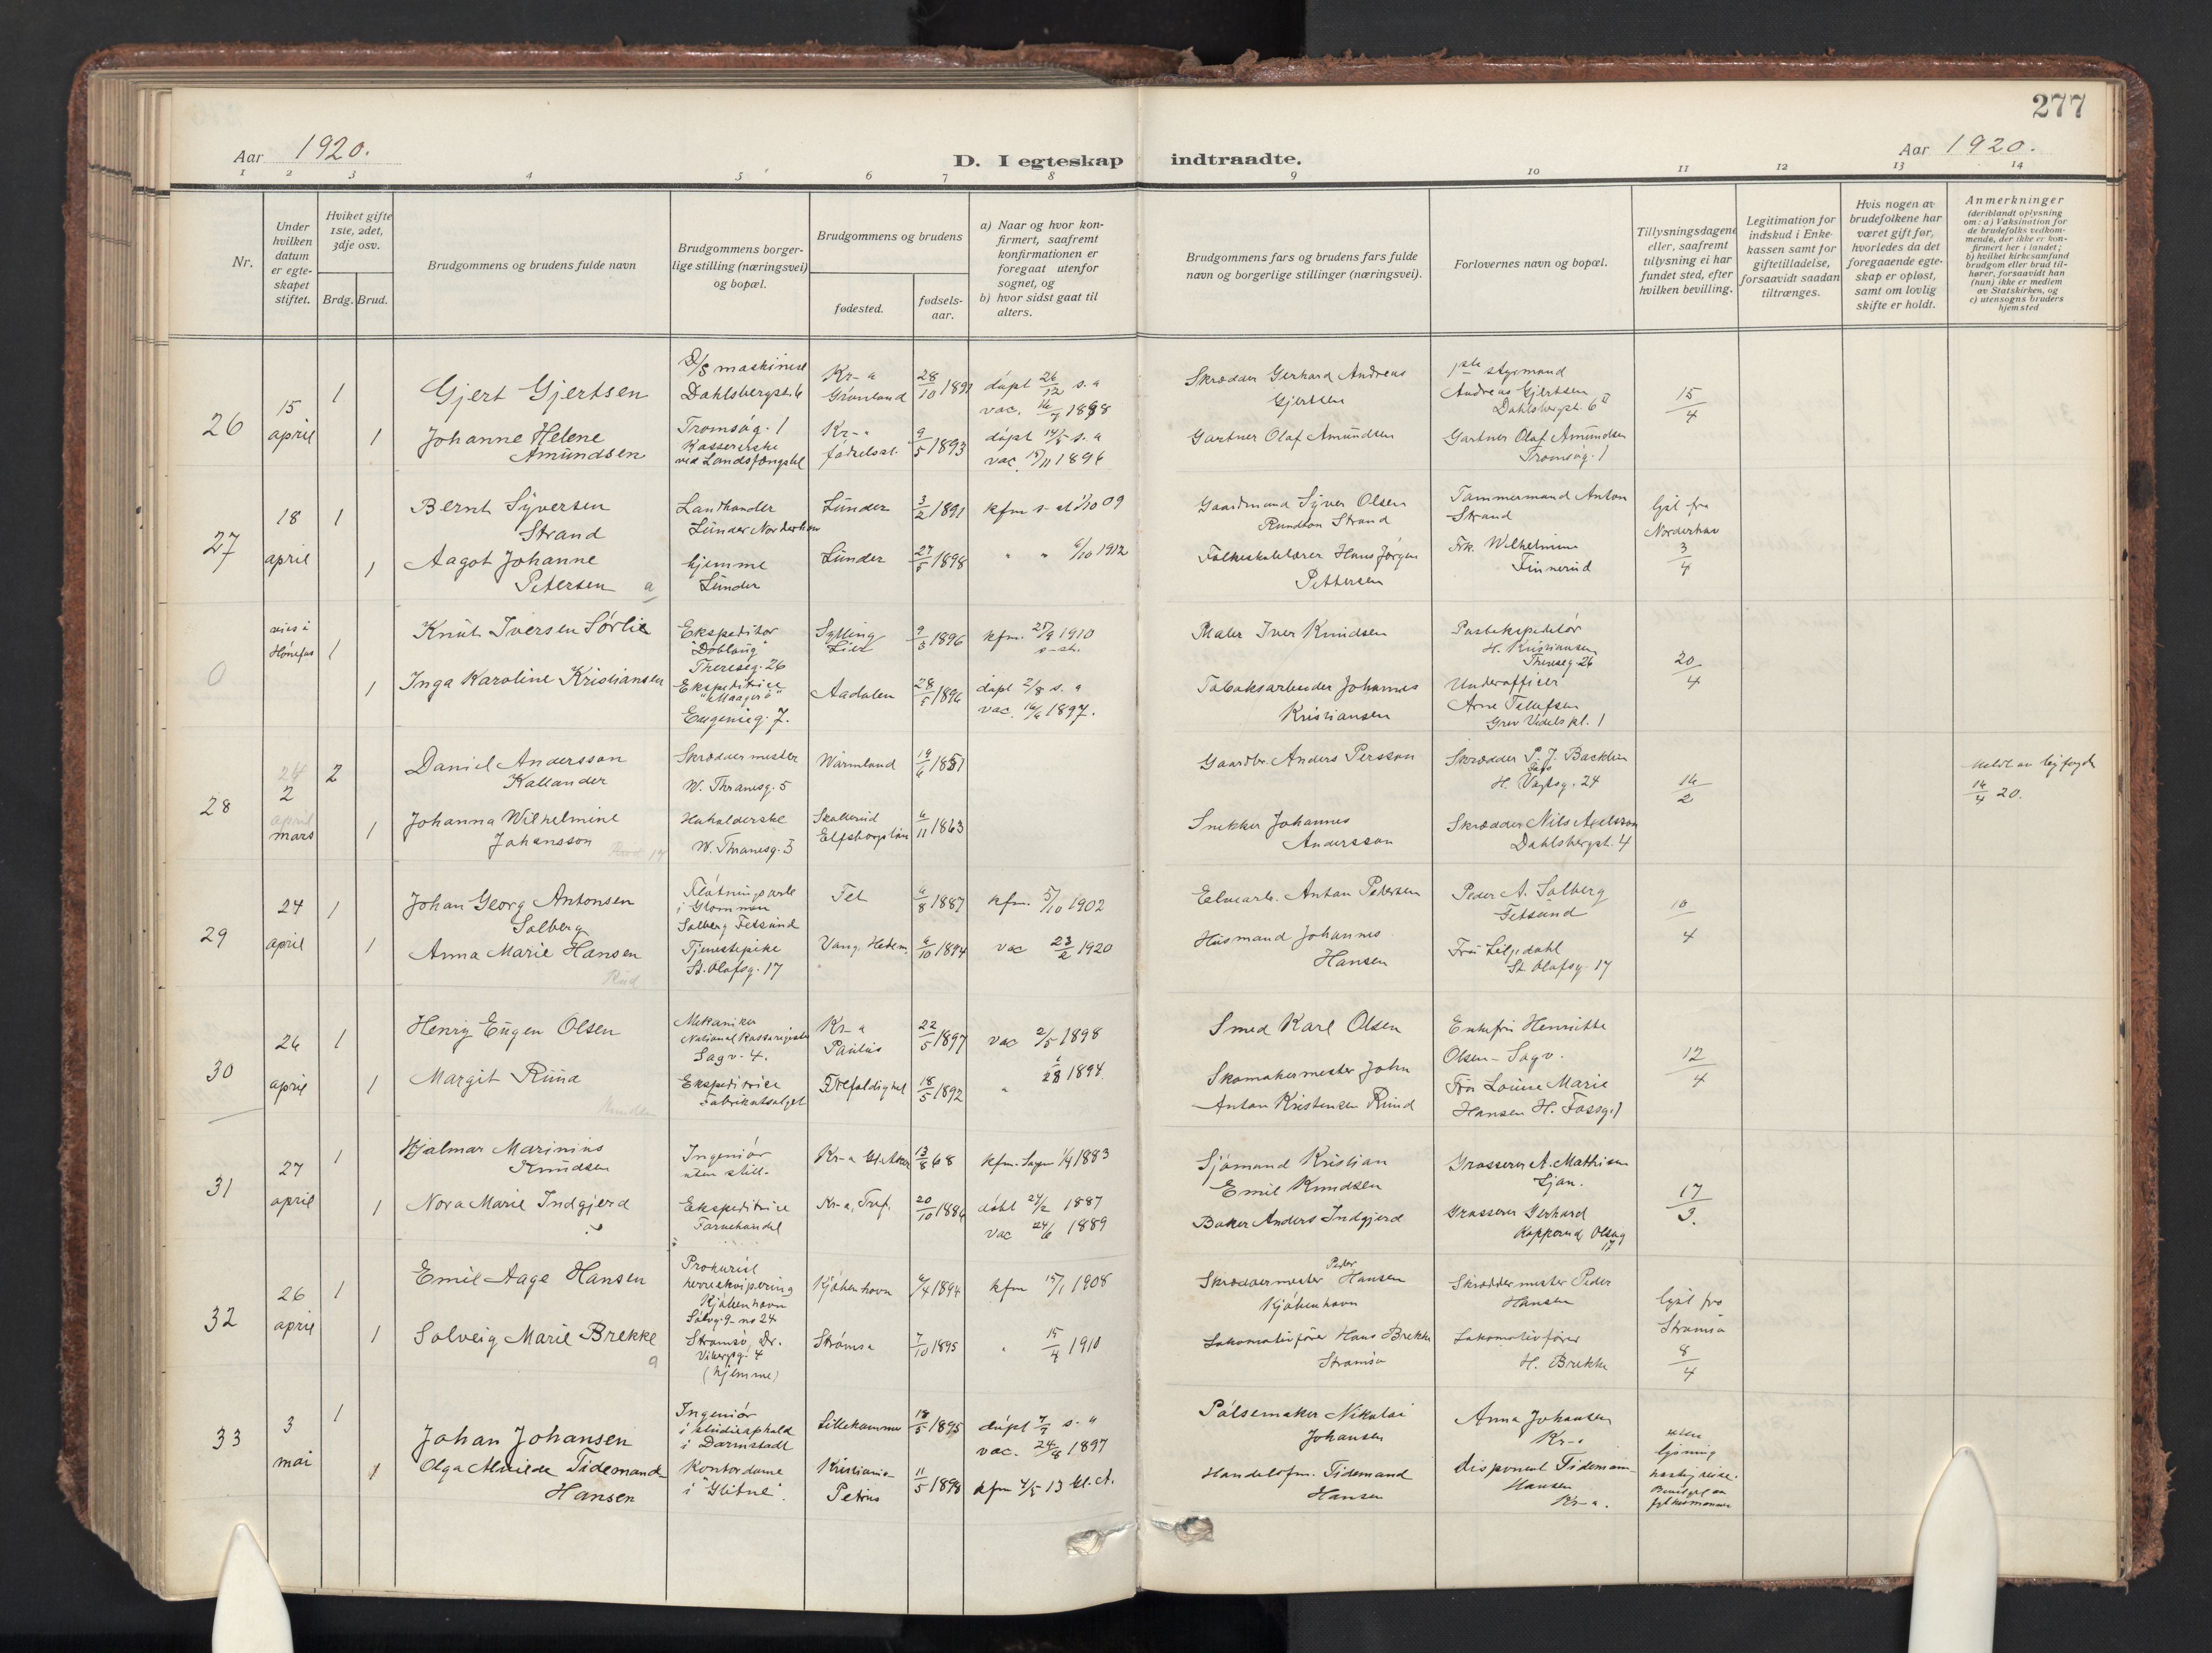 277
Aar 1920.
D. I egteskap indtraadte.
Aar 1920.
1 2 3 4 5 6 7 8 9 10 11 12 13 14
Nr.
Under hvilken datum er egte-skapet stiftet.
Hviket gifte 1ste, 2det, 3dje osv.
Brdg. Brud.
Brudgommens og brudens fulde navn
Brudgommens borger-
lige stilling (næringsvei)
og bopæl.
Brudgommens og brudens
fødested.
fødsels-
aar.
a) Naar og hvor kon-
firmert, saafremt
konfirmationen er
foregaat utenfor
sognet, og
b) hvor sidst gaat til
alters.
Brudgommens fars og brudens fars fulde
navn og borgerlige stillinger (næringsvei).
Forlovernes navn og bopæl.
Tillysningsdagene
eller, saafremt
tillysning ei har
fundet sted, efter
hvilken bevilling.
Legitimation for
indskud i Enke-
kassen samt for
giftetilladelse,
forsaavidt saadan
tiltrænges.
Hvis nogen av
brudefolkene har
været gift før,
hvorledes da det
foregaaende egte-
skap er opløst,
samt om lovlig
skifte er holdt.
Anmerkninger
(deriblandt oplysning
om: a) Vaksination for
de brudefolks vedkom-
mende, der ikke er kon-
firmert her i landet;
b) hvilket kirkesamfund
brudgom eller brud til-
hører, forsaavidt han
(hun) ikke er medlem
av Statskirken, og
c) utensogns bruders
hjemsted
26
15
april
1
Gjert Gjertsen
D/S maskinist
Dahlsbergst. 6
Kr-a
Grønland
28/10 1891
døpt 26/12 s. a
vac.
Skrædder Gerhard Andreas
Gjertsen
1ste styrmand
Andreas Gjertsen
Dahlsbergst. 6 II
15/4
1
Johanne Helene
Amundsen
Tromsøg. 1
Kassererske
ved Landsfængslet
Kr-a
fødselsst.
9/5 1893
døpt 14/5 s. a
vac. 1896
Gartner Olaf Amundsen
Gartner Olaf Amundsen
Tromsøg. 1
27
18
april
1
Bernt Syversen
Strand
Landhandler
Lunder Norderhov
Lunder
3/2 1891
kfm s. st 1/10 09
Gaardmand Syver Olsen
Strand
Tømmermand Anton
Strand
lyst fra
Norderhov
3/4
1
Aagot Johanne
Petersen a
hjemme
Lunder
Lunder
27/5 1898
" " 6/10 1912
Folkeskolelærer Hans Jørgen
Pettersen
Frk. Wilhelmine
Finnerud
0
vies i
Hønefos
1
Knut Iversen Sørlie
Ekspeditør
"Døblaug"
Thereseg. 26
Sylling
Lier
9/3 1896
kfm. 25/9 1910
s-st.
Maler Iver Knudsen
Postekspeditør
H. Kristiansen
Thereseg. 26
20/4
1
Inga Karoline Kristiansen
Ekspeditrice
Eugenieg. 7.
Aadalen
28/5 1896
døpt 2/8 s. a
vac. 16/6 1897.
Tobaksarbeider Johannes
Kristiansen
Underofficer
Arne Tellefsen
Grev Vedels pl. 1
28
2
mars
2
Daniel Andersson
Kallander
Skræddermester
W. Thranesg. 5
Wärmland
19/6 1851
Gaardbr. Anders Persson
Skrædder P. J. Backlin
H. Vogtsg. 24
14/2
14/4 20.
1
Johanna Wilhelmine
Johansson
Husholderske
W. Thranesg. 3
Skallerud
Elfsborgs län
6/11 1863
Snekker Johannes
Andersson
Skrædder Nils Axelsson
Dahlsbergst. 4
29
24
april
1
Johan Georg Antonsen
Solberg
Fløtningsarb.
i Glommen
Solberg Fetsund
Fet
6/8 1887
kfm. 5/10 1902
Elvearb. Anton Petersen
Peder A. Solberg
Fetsund
10/4
1
Anna Marie Hansen
Tjenestepike
St. Olafsg. 17
Vang. Hedem.
6/10 1894
vac 23/2 1920
Husmand Johannes
Hansen
Fru Liljedahl
St. Olafsg. 17
30
26
april
1
Henry Eugen Olsen
Mekaniker
National Kasseregister
Sagv. 4.
Kr-a
Paulus
22/5 1897
vac 2/5 1898
Smed Karl Olsen
Enkefru Henritte
Olsen - Sagv.
12/4
1
Margit Ruud
Ekspeditrice
Fabrikutsalget
Trefoldighet
18/5 1892
" 1894
Skomakermester John
Anton Kristensen Ruud
Fru Louise Marie
Hansen H. Fossg. 1
31
27
april
1
Hjalmar Marinius
Knudsen
Ingeniør
uten still.
Kr-a Gl. Aker
13/8 68
kfm. Sagene 1883
Sjømand Kristian
Emil Knudsen
Grosserer A. Mathisen
Ljan.
17/3.
1
Nora Marie Indgjerd
Ekspeditrice
Farvehandel
Kr-a, Tref.
20/10 1886
døbt 24/2 1887
vac 24/6 1889
Baker Anders Indgjerd
Grosserer Gerhard
32
26
april
1
Emil Aage Hansen
Prokurist
herreekvipering
Kjøbenhavn
Kjøbenhavn
4/4 1894
kfm 15/1 1908
Skræddermester Peder Hansen
Kjøbenhavn
Skræddermester Peder
Hansen
lyst fra
Strømsø
8/4
1
Solveig Marie Brekke
a
Strømsø, Dr.
Vikersg. 4
(hjemme)
Strømsø
7/10 1895
" 15/4 1910
Lokomotivfører Hans Brekke
Strømsø
Lokomotivfører
H. Brekke
33
3
mai
1
Johan Johansen
Ingeniør
i studieophold
i Darmstadt
Lillehammer
18/5 1895
døpt 7/7 s. a
vac. 24/8 1897
Pølsemaker Nikolai
Johansen
Anna Johansen
Kr-a
uten
lysning
1
Olga Alvilde Tidemand-
Hansen
Kontordame
i "Glitne".
Kristiania
Petrus
11/5 1898
kfm 4/5 13 Gl. A.
Handelsfm. Tidemand
Hansen
disponent Tidemand-
Hansen
Kr-a.